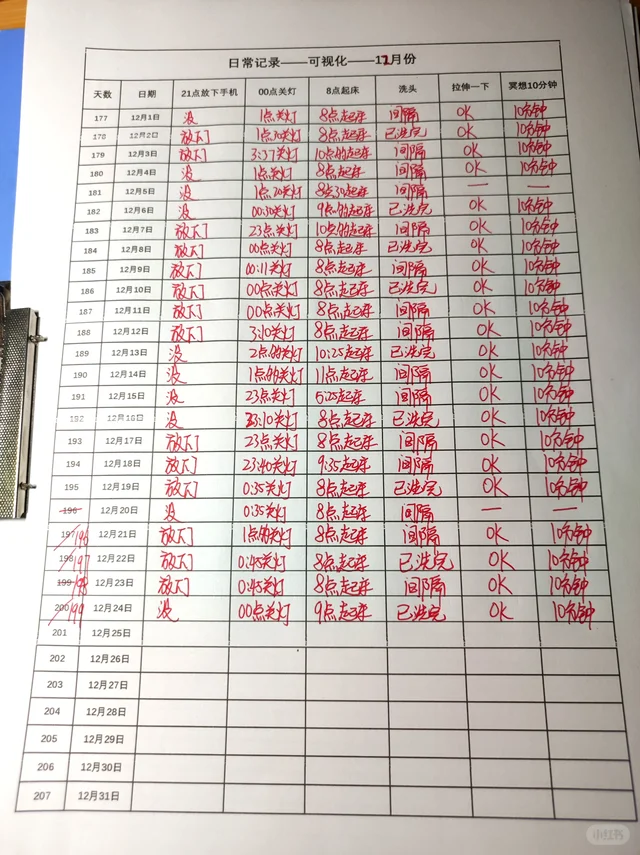 日常记录——可视化——12月份
天数 日期 21点放下手机 00点关灯 8点起床 洗头 拉伸一下 冥想10分钟
177 12月1日 没 1点关灯 8点起床 间隔 OK 10分钟
178 12月2日 放下了 1点10关灯 8点起床 已洗完 OK 10分钟
179 12月3日 放下了 3:37关灯 10点多起床 间隔 OK 10分钟
180 12月4日 没 1点关灯 8点起床 间隔 OK 10分钟
181 12月5日 没 1点20关灯 8点30起床 间隔 — —
182 12月6日 没 00:30关灯 9点多起床 已洗完 OK 10分钟
183 12月7日 放下了 23点关灯 10点多起床 间隔 OK 10分钟
184 12月8日 放下了 00点关灯 8点起床 已洗完 OK 10分钟
185 12月9日 放下了 00:11关灯 8点起床 间隔 OK 10分钟
186 12月10日 放下了 00点关灯 8点起床 已洗完 OK 10分钟
187 12月11日 放下了 00点关灯 8点起床 间隔 OK 10分钟
188 12月12日 放下了 3:10关灯 8点起床 间隔 OK 10分钟
189 12月13日 没 2点多关灯 10:25起床 已洗完 OK 10分钟
190 12月14日 没 1点多关灯 11点起床 间隔 OK 10分钟
191 12月15日 没 23点关灯 5:25起床 间隔 OK 10分钟
192 12月16日 没 23:10关灯 8点起床 已洗完 OK 10分钟
193 12月17日 放下了 23点关灯 8点起床 间隔 OK 10分钟
194 12月18日 放下了 23:40关灯 9:35起床 间隔 OK 10分钟
195 12月19日 放下了 0:35关灯 8点起床 已洗完 OK 10分钟
196 12月20日 没 0:35关灯 8点起床 间隔 — —
197 196 12月21日 放下了 1点多关灯 8点起床 间隔 OK 10分钟
198 197 12月22日 放下了 0:45关灯 8点起床 已洗完 OK 10分钟
199 198 12月23日 放下了 0:45关灯 8点起床 间隔 OK 10分钟
200 199 12月24日 没 00点关灯 9点起床 已洗完 OK 10分钟
201 12月25日
202 12月26日
203 12月27日
204 12月28日
205 12月29日
206 12月30日
207 12月31日
小红书